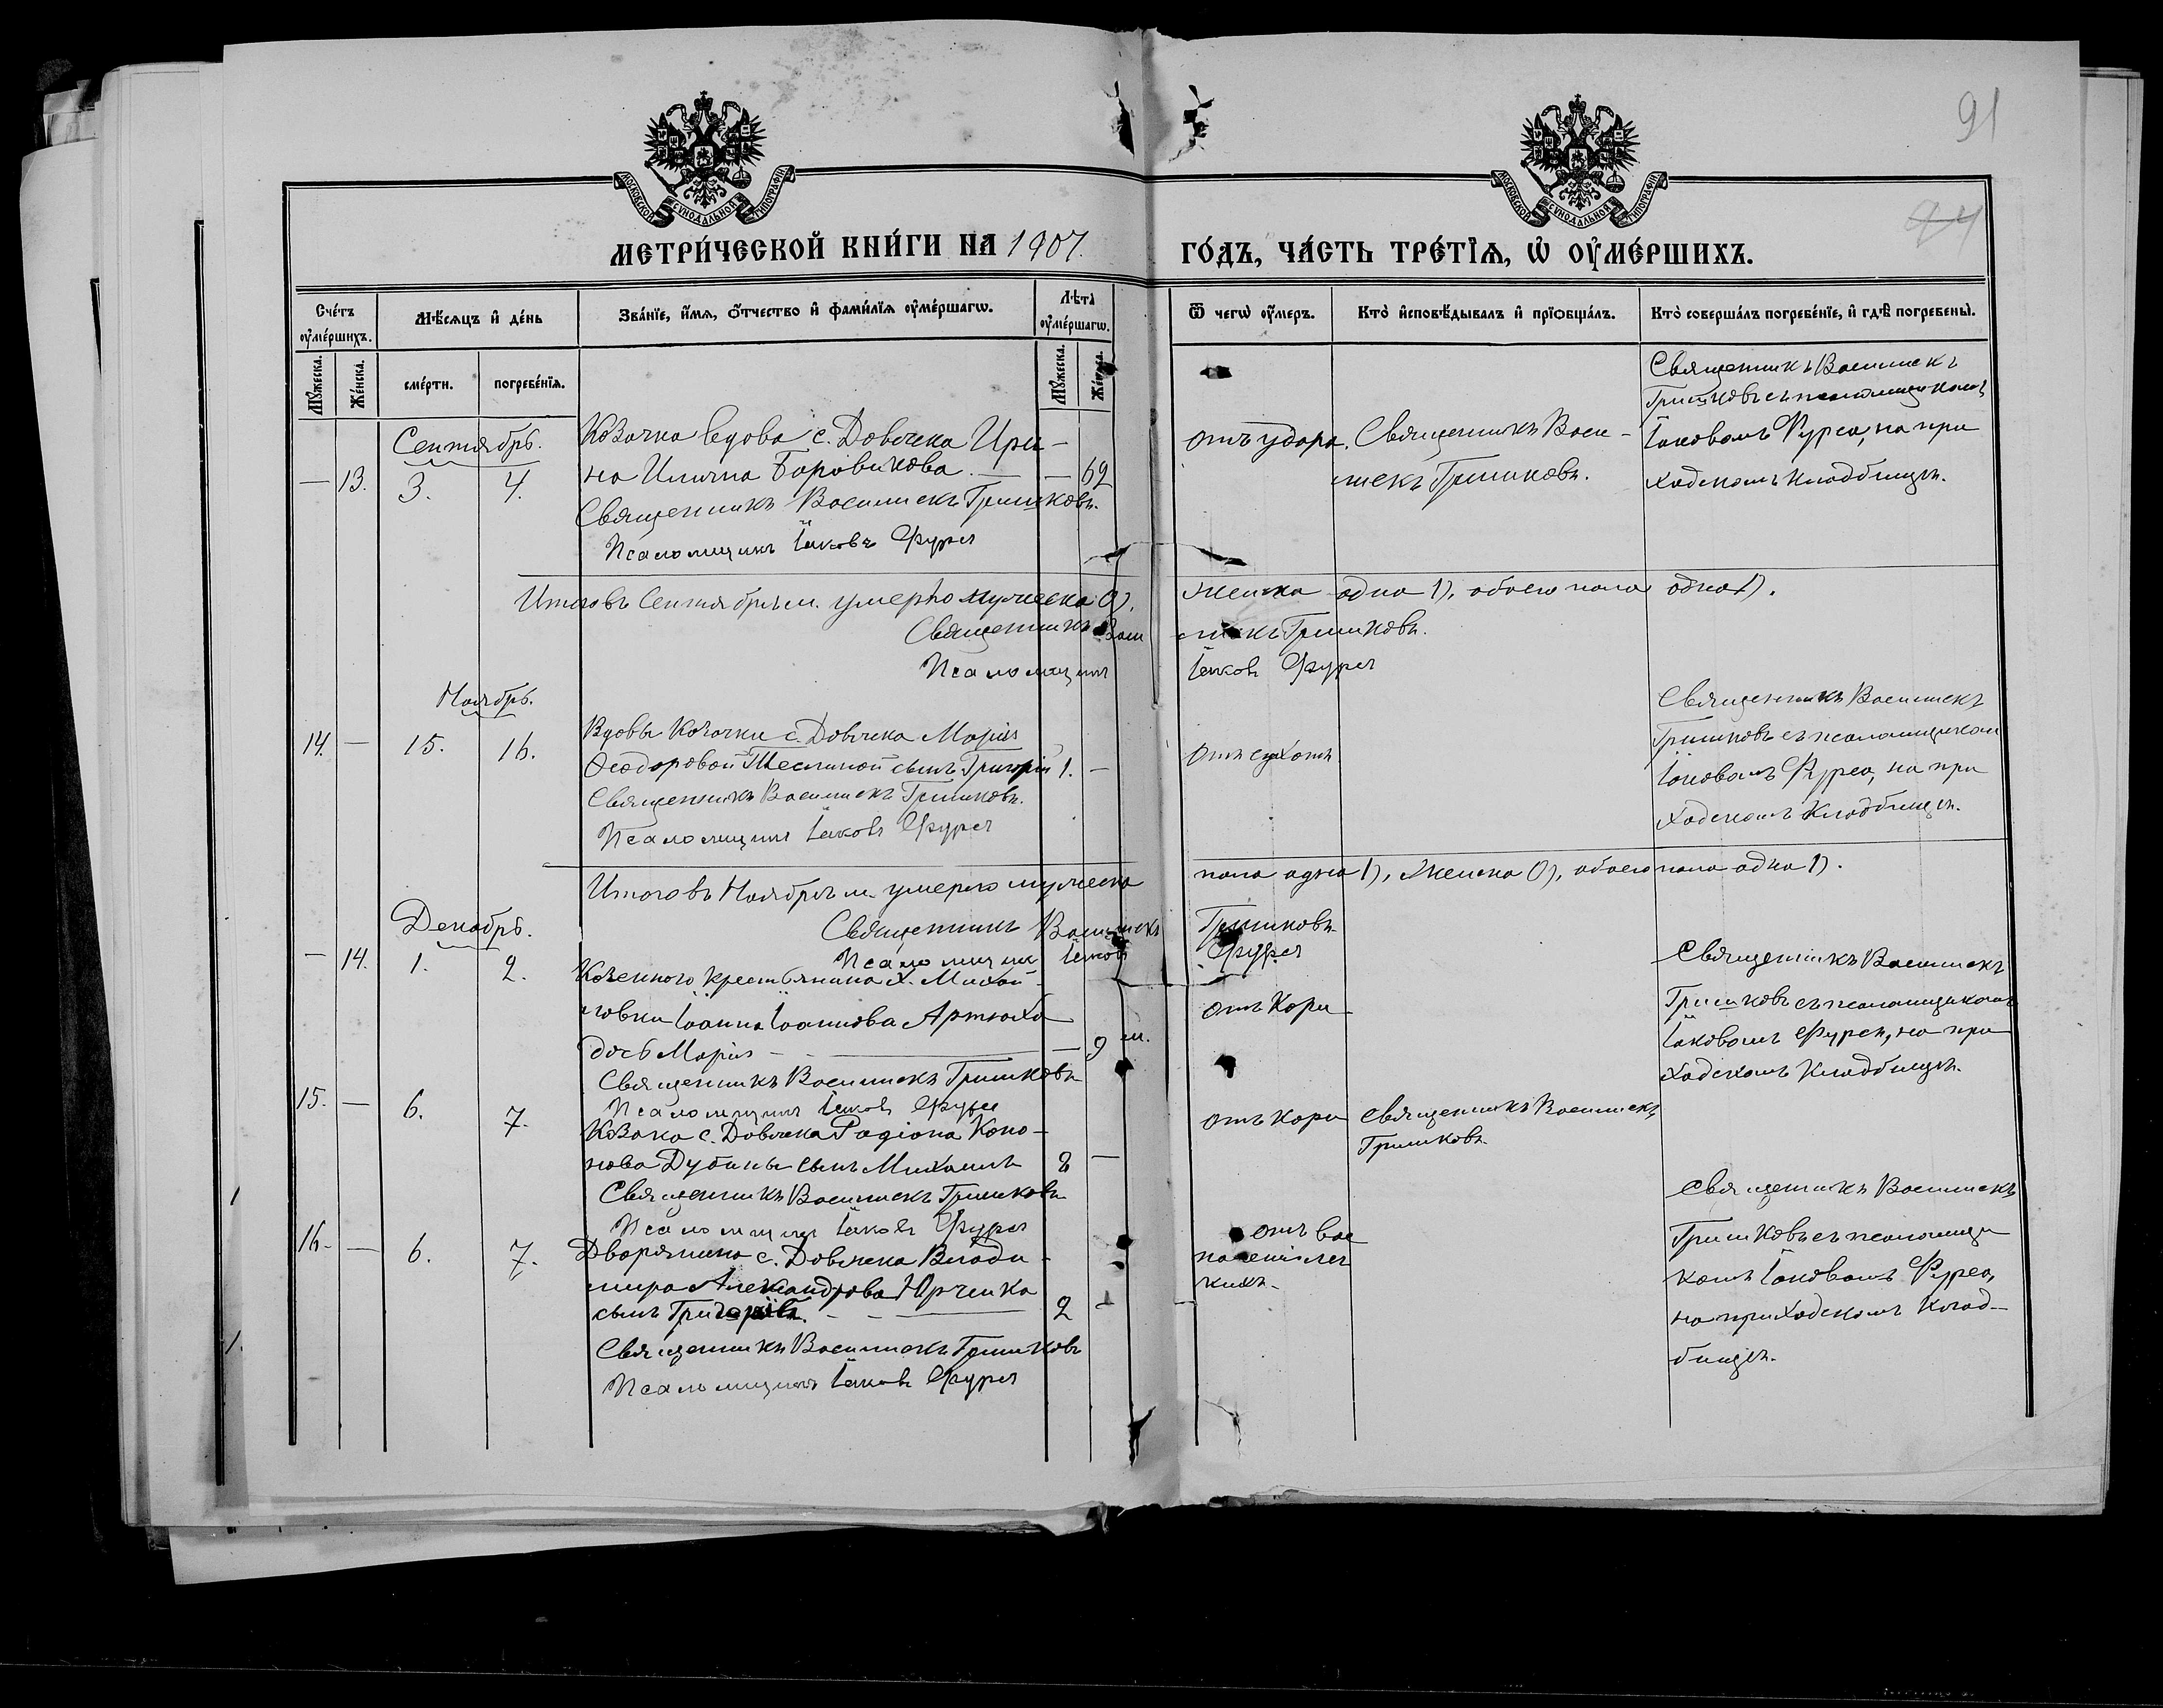 91
94
МОСКОВСКОЙ СѴНОДАЛЬНОЙ ТИПОГРАФІИ
МОСКОВСКОЙ СѴНОДАЛЬНОЙ ТИПОГРАФІИ
МЕТРИ́ЧЕСКОЙ КНИ́ГИ НА 1907.
ГО́ДЪ, ЧА́СТЬ ТРЕ́ТІѦ, Ѡ҆ ОУ҆МЕ́РШИХЪ.
Сче́тъ оу҆ме́ршихъ.
Мѣ́сѧцъ и҆ де́нь
Зва́нїе, и҆́мѧ, ѻ҆́тчество и҆ фами́лїѧ оу҆ме́ршагѡ.
Лѣ̀та оу҆ме́ршагѡ.
Ѿ чегѡ̀ оу҆́меръ.
Кто̀ и҆сповѣ́дывалъ и҆ прїѡбща́лъ.
Кто̀ соверша́лъ погребе́нїе, и҆ гдѣ̀ погребены̀.
Мꙋ́жеска.
Же́нска.
сме́рти.
погребе́нїѧ.
Мꙋ́жеска.
Же́нска.
Сентябрь.
— 13. 3. 4.
Козачка вдова с. Довжека Ири-
на Илична Боровикова. — — 62
Священникъ Василискъ Гришковъ.
Псаломщикъ Іаковъ Фурса
отъ удара.
Священникъ Васи-
лискъ Гришковъ.
Священникъ Василискъ
Гришковъ съ псаломщикомъ
Іаковомъ Фурса, на при
ходскомъ кладбищѣ.
Итого въ Сентябрѣ м. умерло мужеска 0), женска одна 1), обоего пола одна 1).
Священникъ Васи лискъ Гришковъ.
Псаломщикъ Іаковъ Фурса
Ноябрь.
14. — 15. 16.
Вдовы козачки с. Довжека Маріи
Ѳеодоровой Теслиной сынъ Григорій 1. —
Священникъ Василискъ Гришковъ.
Псаломщикъ Іаковъ Фурса
отъ сухотъ
Священникъ Василискъ
Гришковъ съ псаломщикомъ
Іаковомъ Фурса, на при
ходскомъ кладбищѣ.
Итого въ Ноябрѣ м. умерло мужеска пола одна 1), женска 0), обоего пола одна 1).
Священникъ Василискъ Гришковъ
Псаломщикъ Іаковъ Фурса
Декабрь.
— 14. 1. 2.
Козенного крестьянина х. Михай-
ловки Іоанна Іоаннова Артюха
дочь Марія — — 9 м.
Священникъ Василискъ Гришковъ
Псаломщикъ Іаковъ Фурса
отъ кори
Священникъ Василискъ
Гришковъ съ псаломщикомъ
Іаковомъ Фурса, на при
ходскомъ кладбищѣ.
15. — 6. 7.
Козака с. Довжека Радіона Коно-
нова Дубины сынъ Михаилъ 2 —
Священникъ Василискъ Гришковъ
Псаломщикъ Іаковъ Фурса
отъ кори
Священникъ Василискъ
Гришковъ.
16. — 6. 7.
Дворянина с. Довжека Влади-
мира Александрова Юрченка
сынъ Григорій. — 2 —
Священникъ Василискъ Гришковъ
Псаломщикъ Іаковъ Фурса
отъ вос
паленія лег
кихъ.
Священникъ Василискъ
Гришковъ съ псаломщи
комъ Іаковомъ Фурса,
на приходскомъ клад-
бищѣ.
1
1.